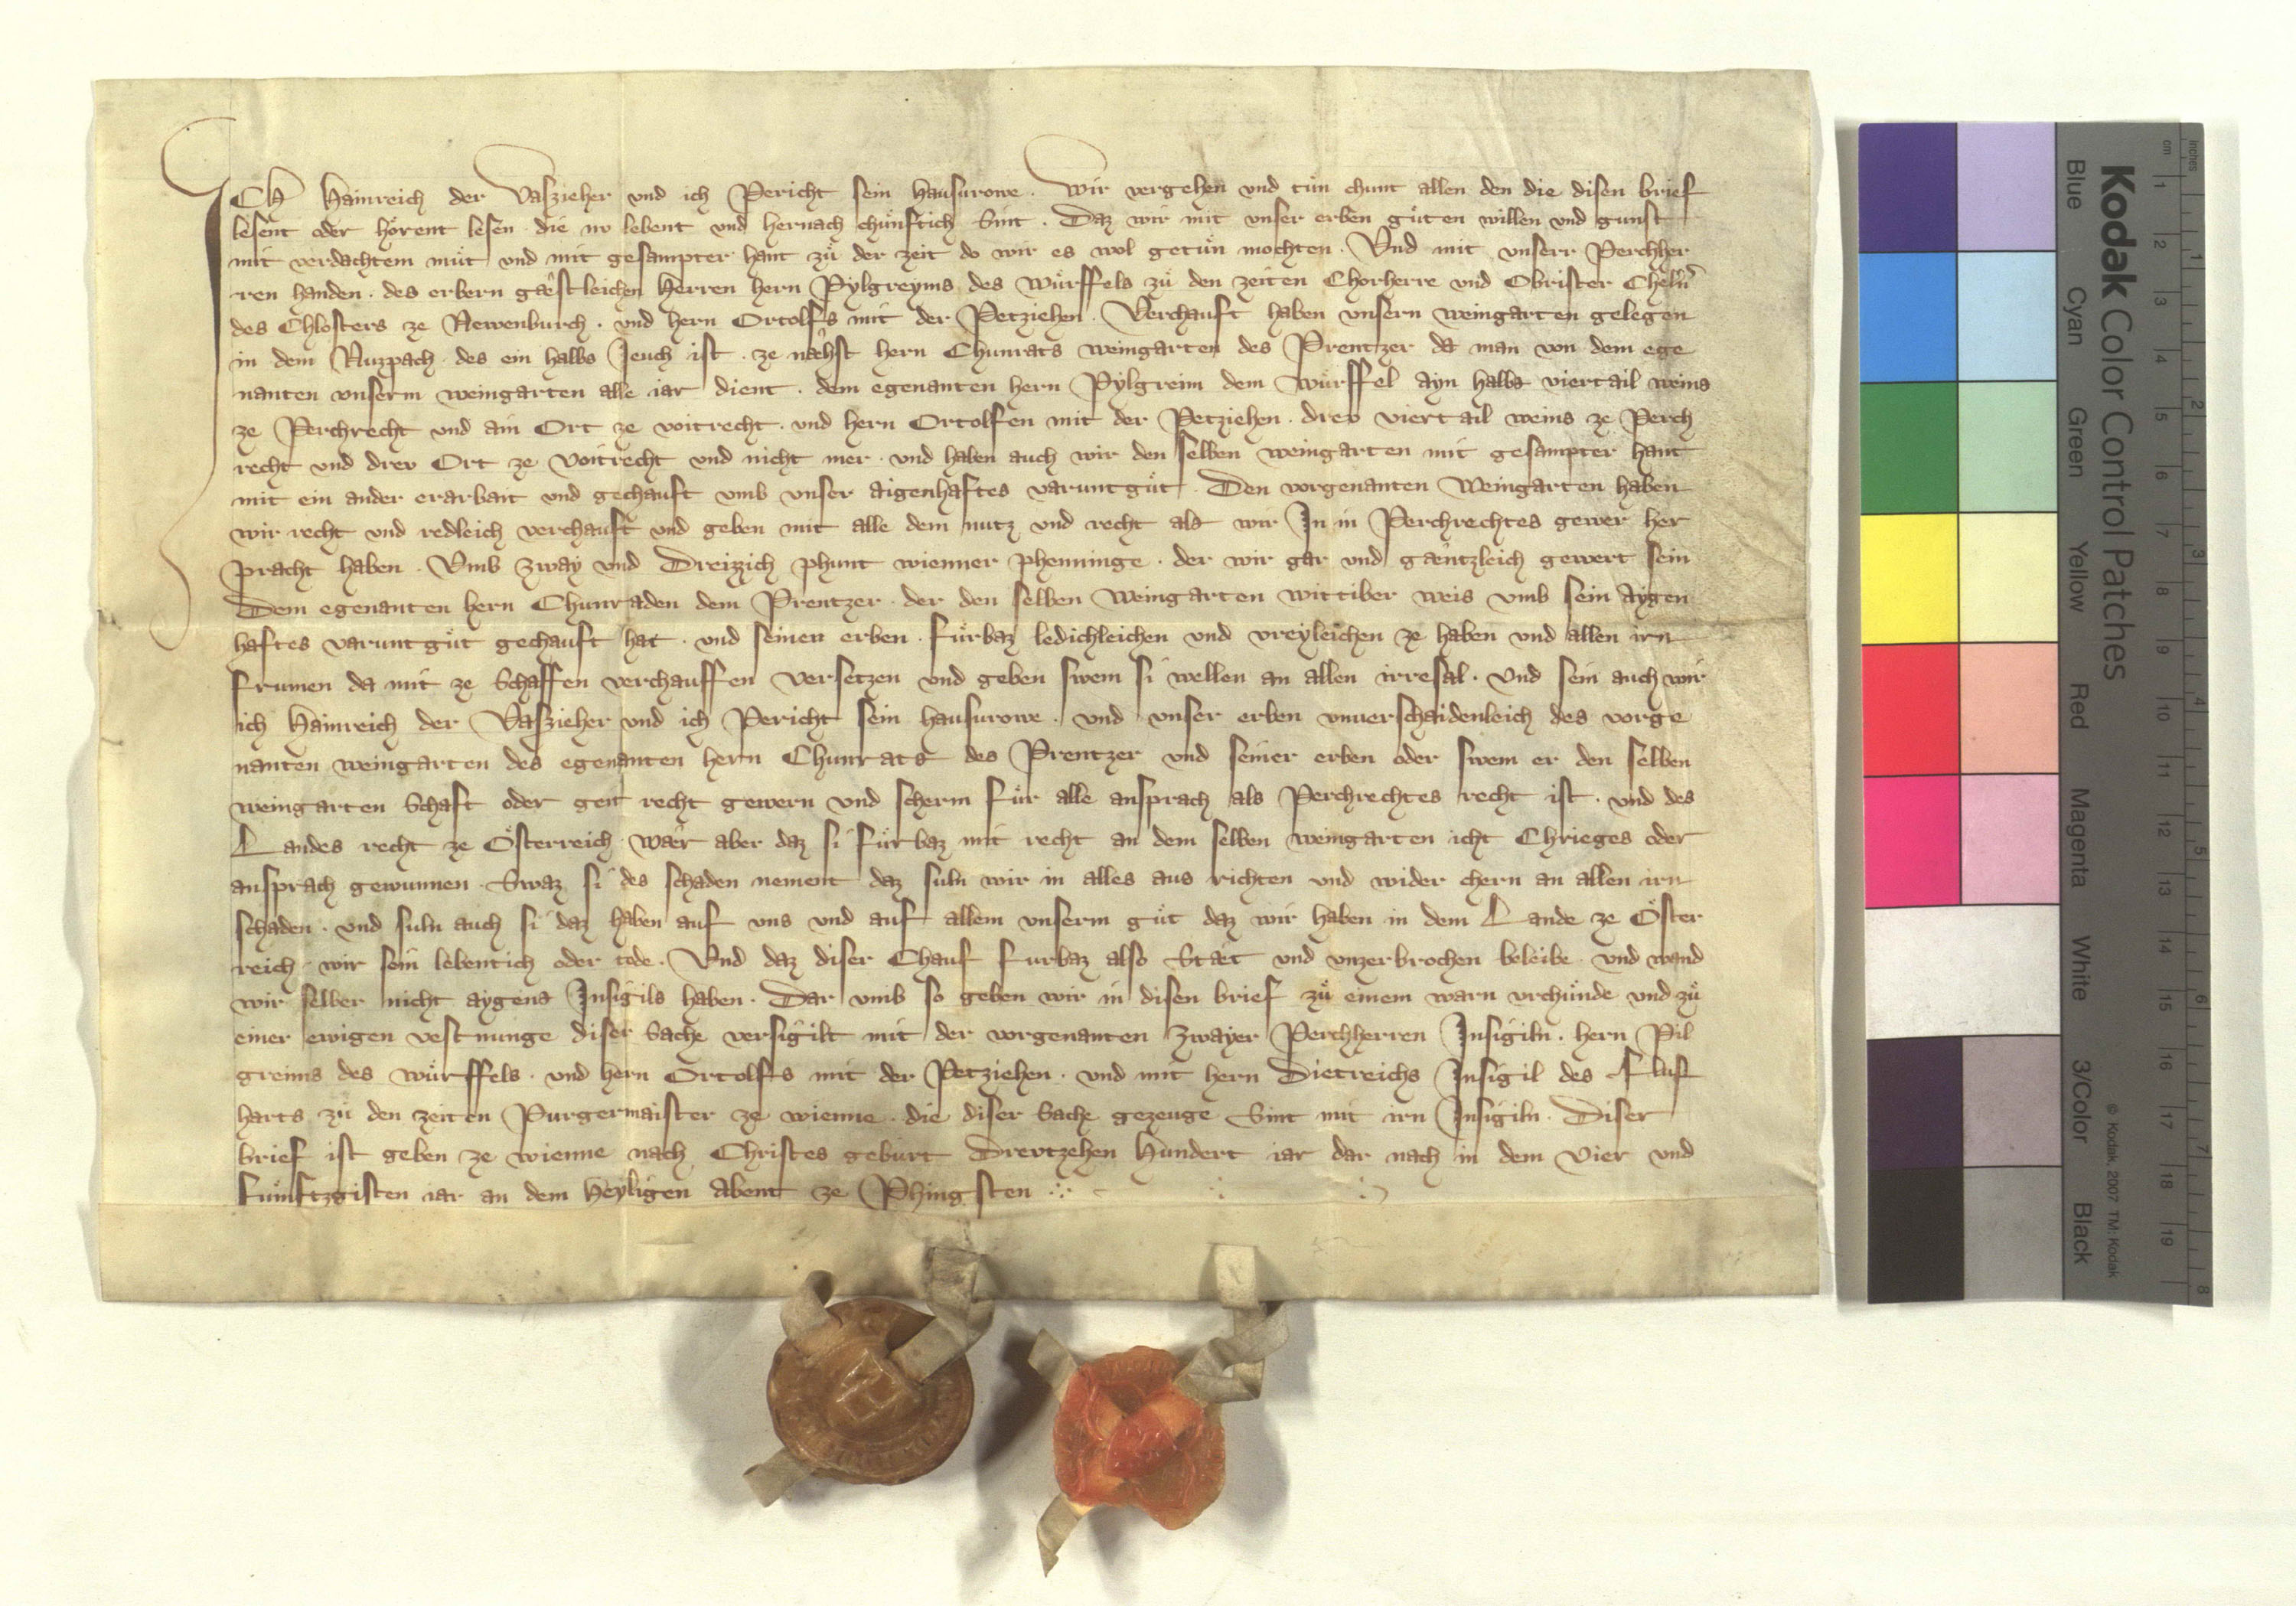 ICh Hainreich der Vaszieher und ich Pericht sein hausvrowe. Wir vergehen und tůn chunt allen den die disen brief
lesent oder hörent lesen die nv lebent und hernach chünftich sint. Daz wir mit unser erben gůten willen und gunst
mit verdachtem můt und mit gesampter hant zů der zeit do wir es wol getůn mochten. Vnd mit unserr Perchher
ren handen. des erbern gæstleichen Herren hern Pylgreyms des Würffels zů den zeiten Chorherre und Obrister
des Chlosters ze Newenburch. und hern Ortolfs mit der Petziehen. Verchauft haben unsern weingarten gelegen
in dem Nuzpach des ein halbs Jeuch ist. ze næhst hern Chunrats weingarten des Prentzer da man von dem ege
nanten unserm weingarten alle iar dient. dem egenanten hern Pylgreim dem würffel ayn halbs viertail weins
ze Perchrecht und ain Ort ze voitrecht. und hern Ortolfen mit der Petziehen. drev viertail weins ze Perch
recht und drev Ort ze Voitrecht und nicht mer. und haben auch wir den selben weingarten mit gesampter hant
mit ein ander erarbait und gechauft umb unser aigenhaftes varuntgůt. Den vorgenanten Weingarten haben
wir recht und redleich verchauft und geben mit alle dem nutz und recht als wir In in Perchrechtes gewer her
pracht haben. Vmb zway und Dreizzich phunt wienner phenninge. der wir gar und gæntzleich gewert sein
Dem egenanten hern Chunraden dem Prentzer. der den selben Weingarten wittiber weis umb sein Aygen
haftes varuntgůt gechauft hat. und seinen erben. fürbaz ledichleichen und vreyleichen ze haben und allen irn
frumen da mit ze Schaffen verchauffen versetzen und geben swem si wellen an allen irresal. Vnd sein auch wir
ich Hainreich der Vaszieher und ich Pericht sein hausvrowe. und unser erben unverschaidenleich des vorge
nanten weingarten des egenanten hern Chunrats des Prentzer und seiner erben oder swem er den selben
weingarten Schaft oder geit recht gewern und scherm für alle ansprach als Perchrechtes recht ist. und des
Landes recht ze Österreich. Wær aber daz si fürbaz mit recht an dem selben weingarten icht Chrieges oder
ansprach gewunnen. Swaz si des schaden nement daz suln wir in alles aus richten und wider chern an allen irn
schaden. und suln auch si daz haben auf uns und auf allem unserm gůt daz wir haben in dem Lande ze Öster
reich. wir sein lebentich oder tode. Vnd daz diser Chauf furbaz also Stæt und unzerbrochen beleibe. und wand
wir selber nicht aygens Insigils haben. Dar umb so geben wir in disen brief zů einem warn vrchünde und zů
einer ewigen vestnunge diser Sache versigilt mit der vorgenanten zwayer Perchherren Insigiln. hern Pil
greims des würffels. und hern Ortolfs mit der Petziehen. und mit hern Dietreichs Insigil des Flusk
harts zů den zeiten Purgermaister ze wienne. die diser Sache gezeuge Sint mit irn Insigiln. Diser
brief ist geben ze wienne nach Christes gebürt Drevtzehen Hundert iar dar nach in dem Vier und
fümftzgisten iar an dem Heyligen Abent ze Phingsten
Kodak Color Control Patches
Blue Cyan Green Yellow Red Magenta White 3/Color Black
© Kodak, 2007 TM: Kodak
cm 1 2 3 4 5 6 7 8 9 10 11 12 13 14 15 16 17 18 19
inches 1 2 3 4 5 6 7 8